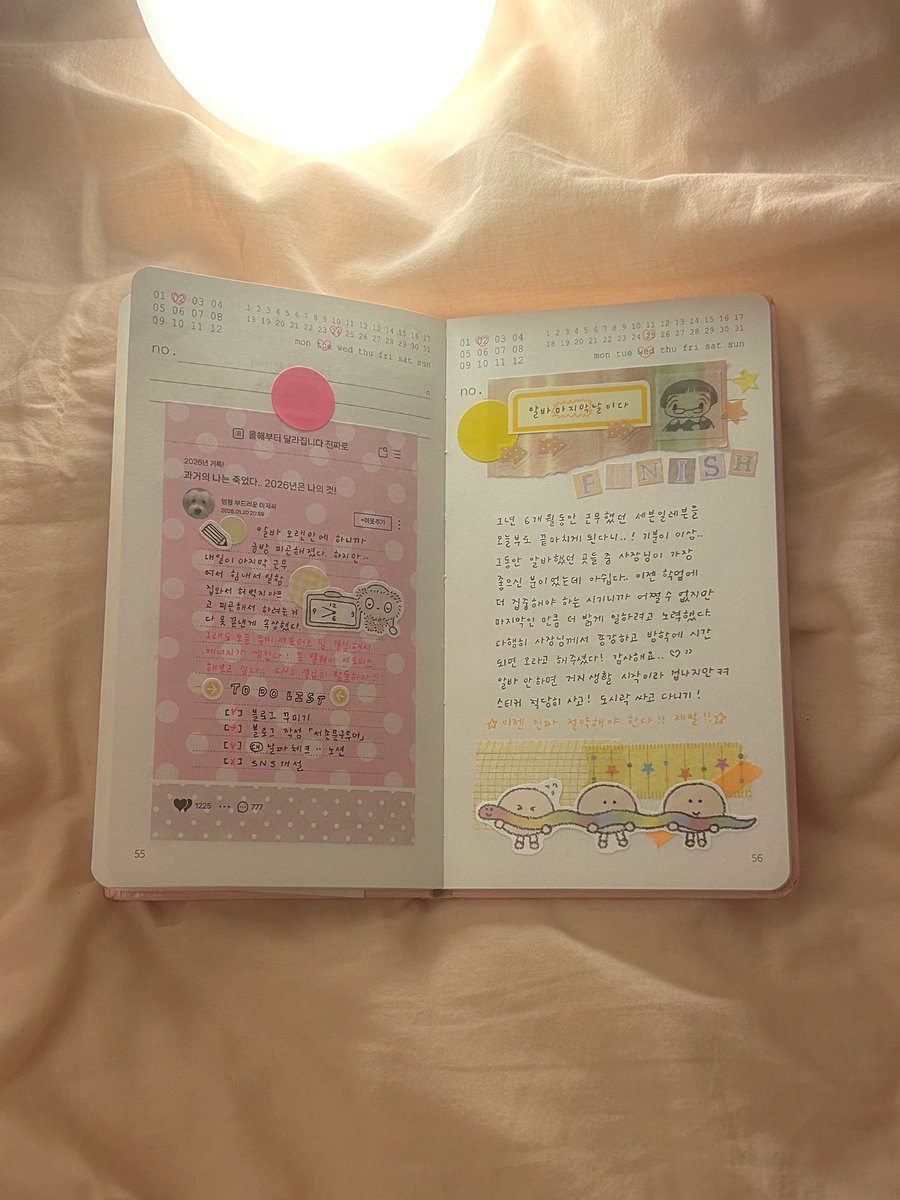 01 02 03 04
05 06 07 08
09 10 11 12
1 2 3 4 5 6 7 8 9 10 11 12 13 14 15 16 17
18 19 20 21 22 23 24 25 26 27 28 29 30 31
mon tue wed thu fri sat sun
no.
올해부터 달라집니다 진짜로
2026년 기획!
과거의 나는 죽었다.. 2026년은 나의 것!
멍청 부드러운 아저씨
2026.01.20 20:59
+이웃추가
알바 오랜만에 하니까
금방 피곤해졌다. 하지만..
내일이 마지막 근무
여서 힘내서 일함
집와서 허벅지아프
고 피곤해서 하려는거
다 못 끝낸게 속상했다.
그래도 오늘
해보고 싶다... SNS 열심히 활동하자!
TO DO LIST
[v] 블로그 꾸미기
[→] 블로그 작성 「서촌문구투어」
[v] 날짜체크.. 노션
[x] SNS 개설
1225 ... 777
55
01 02 03 04
05 06 07 08
09 10 11 12
1 2 3 4 5 6 7 8 9 10 11 12 13 14 15 16 17
18 19 20 21 22 23 24 25 26 27 28 29 30 31
mon tue wed thu fri sat sun
no.
알바 마지막 날이다
FINISH
1년 6개월동안 근무했던 세븐일레븐을
오늘부로 끝마치게 된다니..! 기분이 이상..
그동안 알바했던 곳들 중 사장님이 가장
좋으신 분이었는데 아쉽다.. 이젠 학업에
더 집중해야 하는 시기니까 어쩔 수 없지만
마지막인 만큼 더 밝게 일하려고 노력했다
다행히 사장님께서 종강하고 방학에 시간
되면 오라고 해주셨다! 감사해요.. ♡”
알바 안하면 거지생활 시작이라 겁나지만 ㅋㅋ
스티커 적당히 사고! 도시락 싸고 다니기!
☆이젠 진짜 절약해야 한다!! 제발!!☆
56